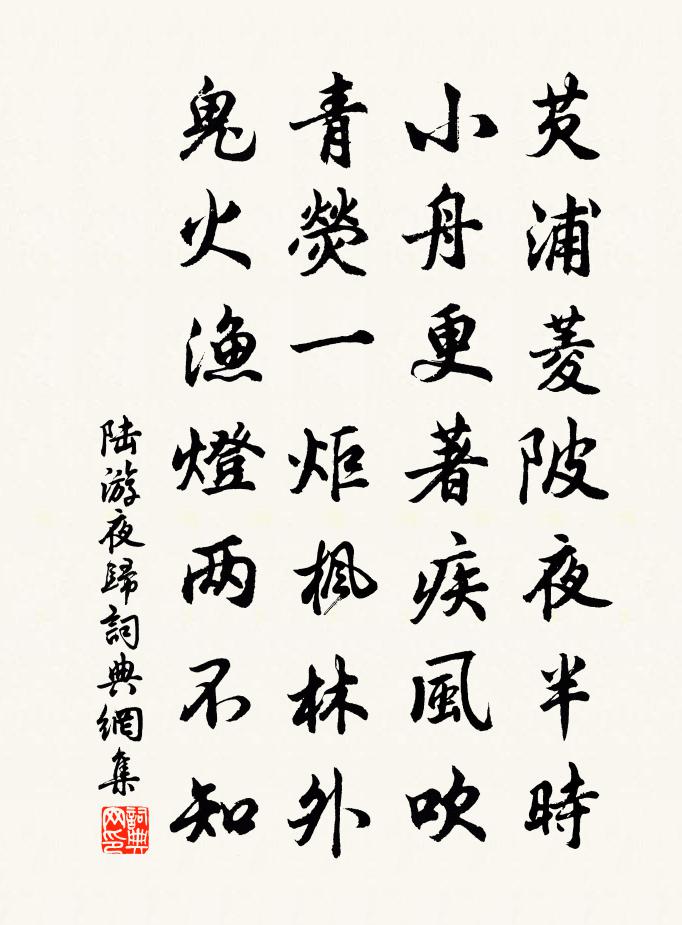 芡浦菱陂夜半時
小舟更著疾風吹
青熒一炬楓林外
鬼火漁燈两不知
陆游夜歸詞典網集
詞典网印